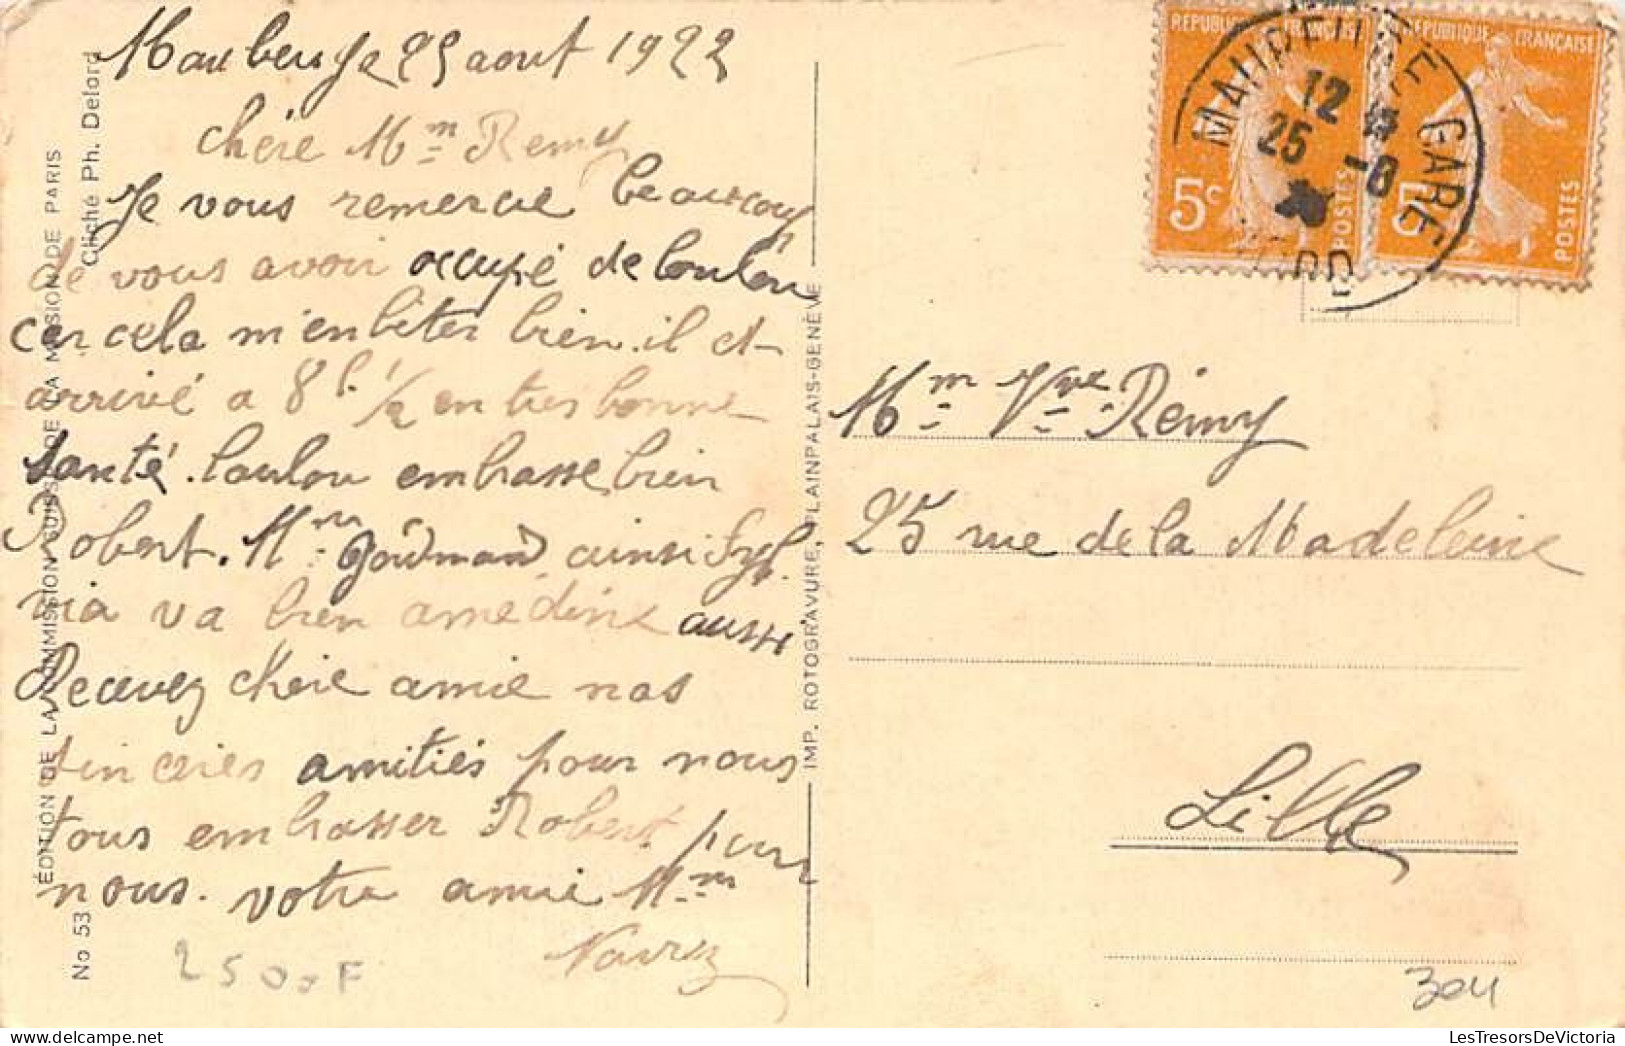 Maubeuge 25 aout 1922
chère Mm Remy
Je vous remercie beaucoup
de vous avoir occupé de loulou
car cela m'enbêter bien. il et
arrivé a 8h 1/2 en tres bonne
santé. loulou embrasse bien
Robert. Mm ainsi Syl
via va bien amedine aussi
Recevez chère amie nos
sinceres amitiés pour nous
tous embrasser Robert pour
nous. votre amie Mm
No 53
ÉDITION DE LA COMMISSION SUISSE DE LA MISSION DE PARIS
Cliché Ph. Delord
IMP. ROTOGRAVURE, PLAINPALAIS-GENÈVE
REPUBLIQUE FRANÇAISE
5c
POSTES
REPUBLIQUE FRANÇAISE
5c
POSTES
MAUBEUGE GARE
12
25 -8
NORD
Mm Vve Rémy
25 rue de la Madeleine
Lille
250 F
304
LesTresorsDeVictoria